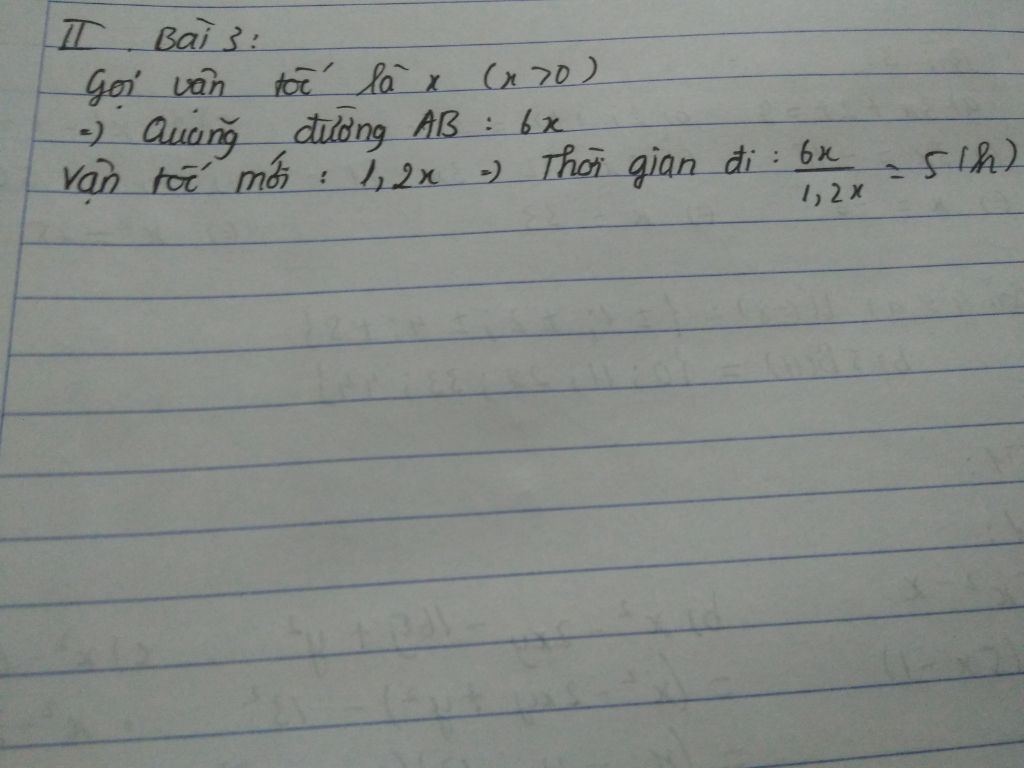 II. Bài 3:
Gọi vận tốc là x (x >0)
=) Quãng đường AB : 6x
Vận tốc mới : 1,2x =) Thời gian đi : 6x/1,2x = 5 (h)